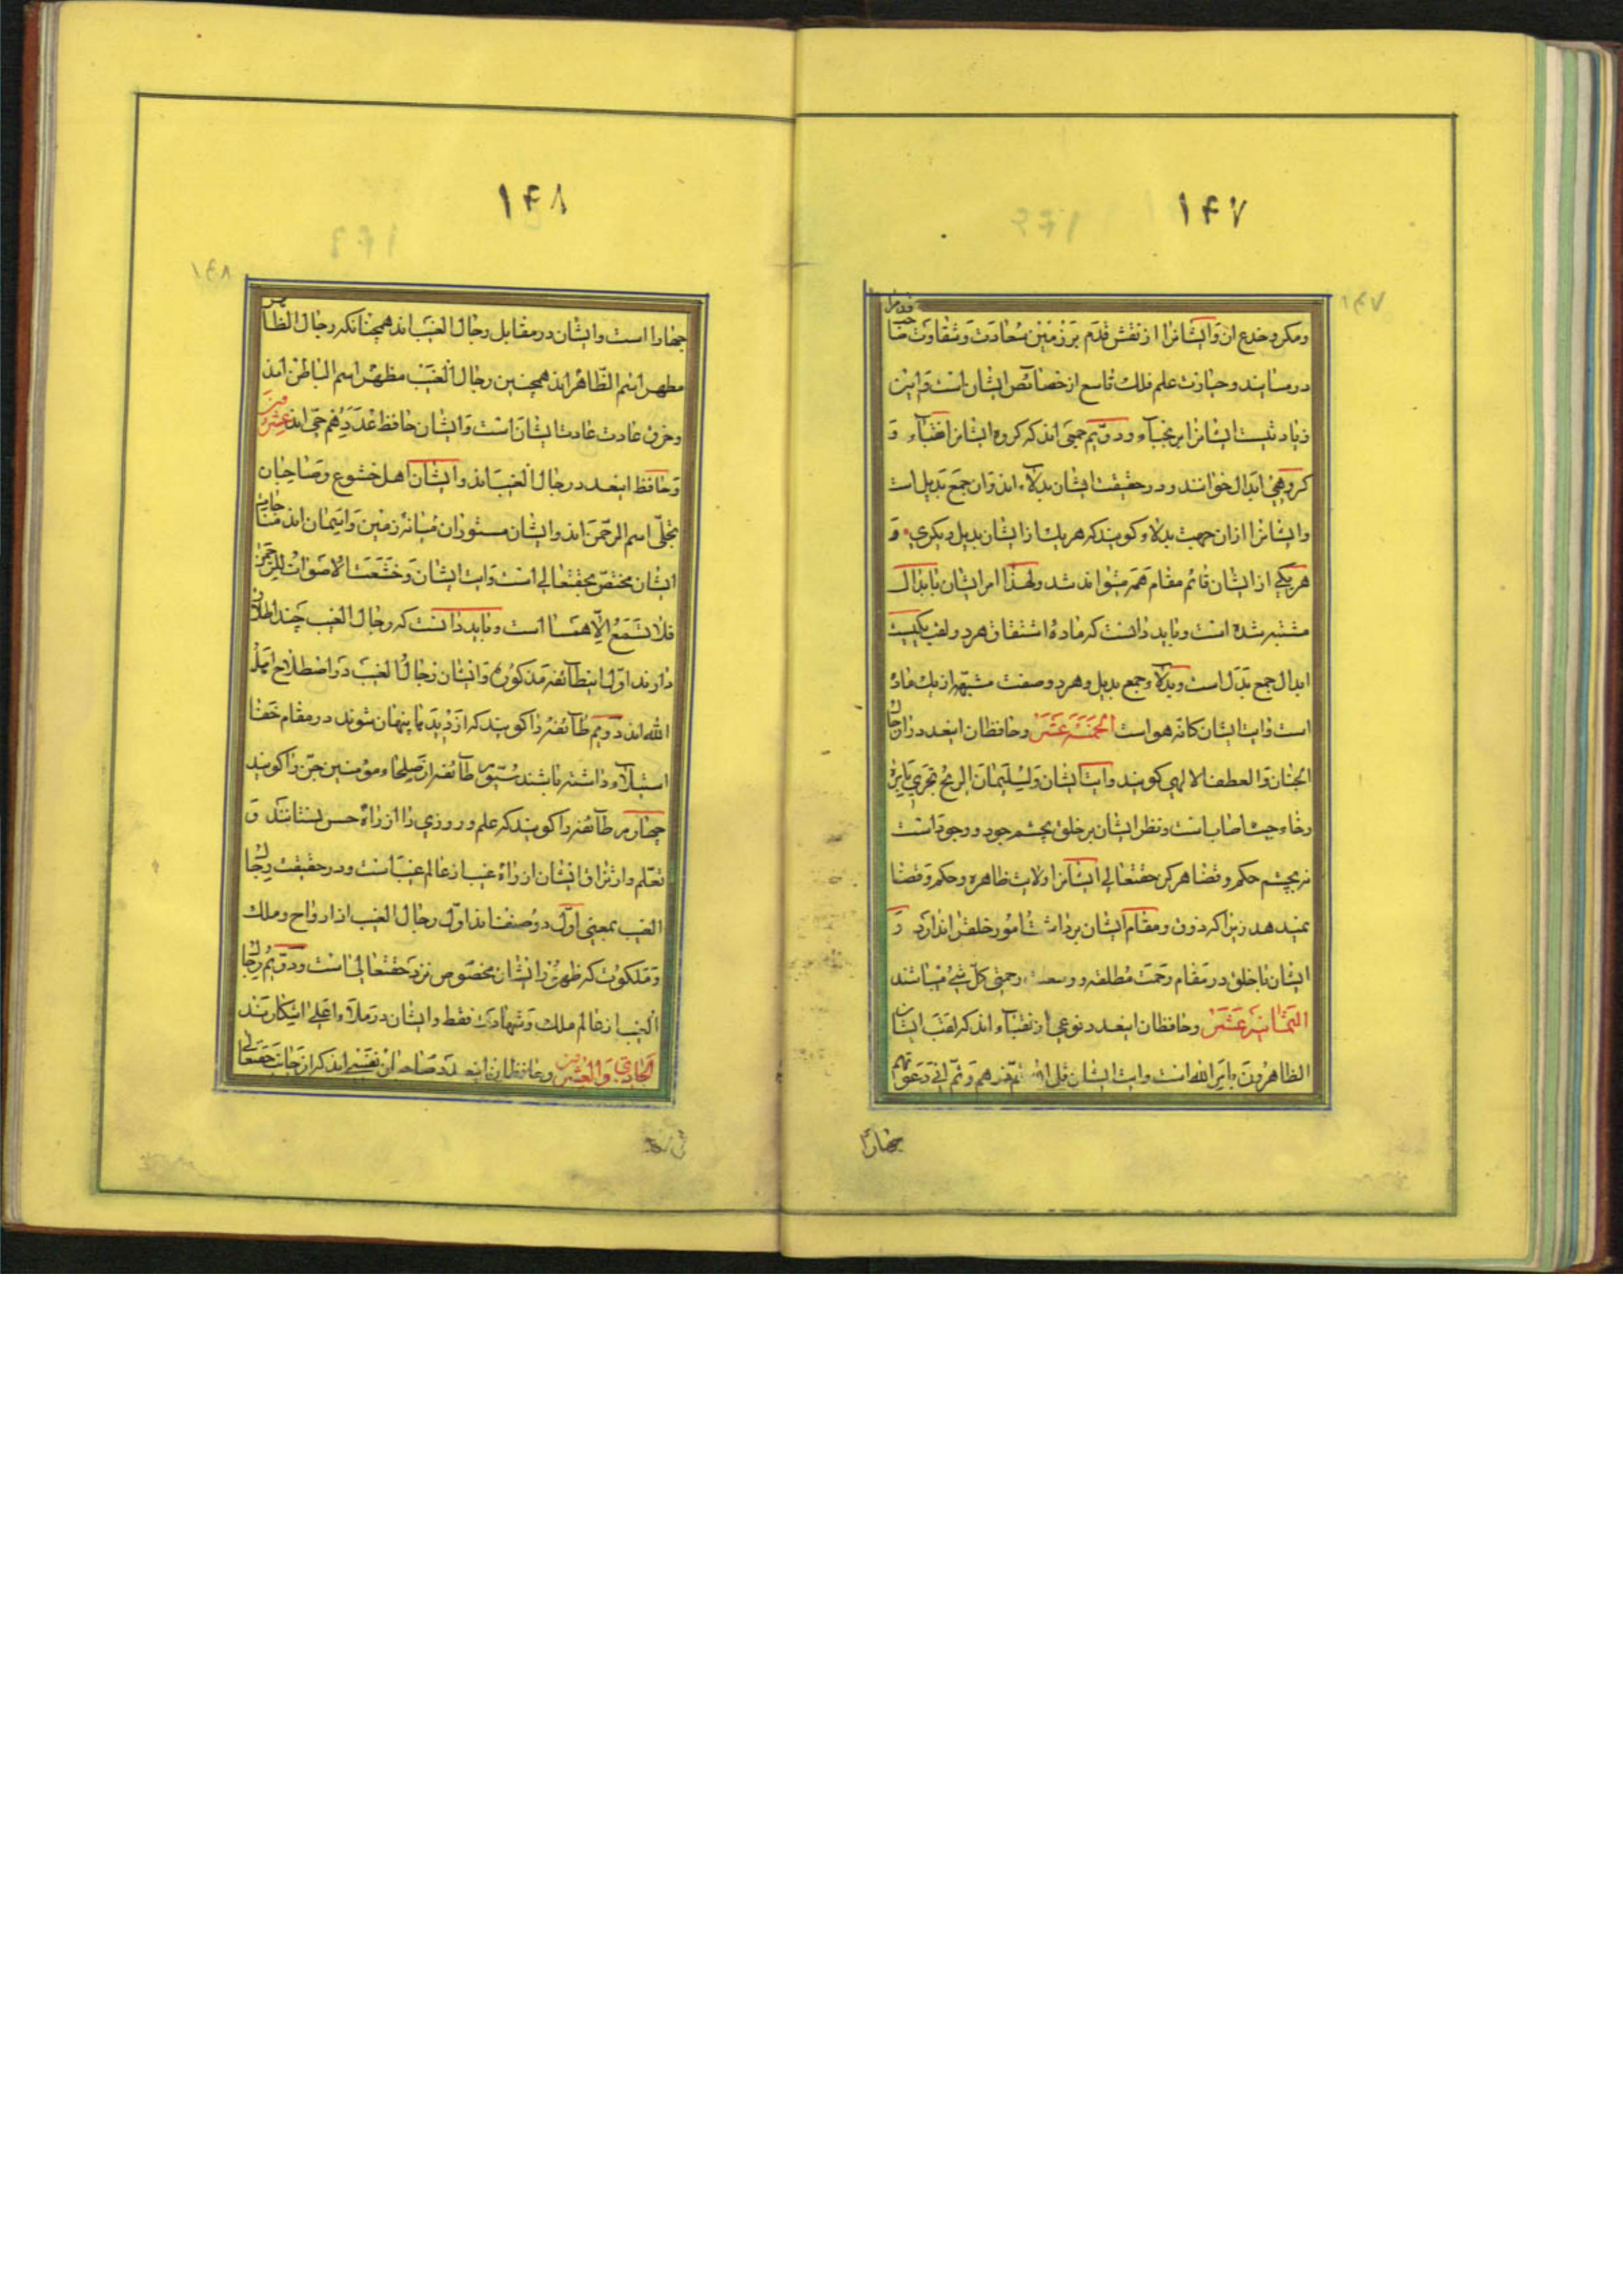 ۱۴۷
ومکر و خدع ان وایشانرا از نقش قدم بر زمین سعادت و شقاوت صاحب قدم را
در میابند و حیازت علم فلک تاسع از خصائص ایشان است و این
زیاد نیست ایشانرا بر نجباء و دویم جمعی اند که گروه ایشانرا نقباء و
گروهی ابدال خوانند و در حقیقت ایشان بدلاء اند و ان جمع بدیل است
وایشانرا از ان جهت بدلاء گویند که هر یک از ایشان بدیل دیگری و
هر یکی از ایشان قائم مقام همه میتواند شد ولهذا امر ایشان بابدال
مشتبه شده است و باید دانست که ماده اشتقاق هر دو لقب یکیست
ابدال جمع بدل است و بدلاء جمع بدیل و هر دو صفت مشبهه از یک ماده
است وایت ایشان کانه هو است الخمسة عشر وحافظان اینعدد را رجال
الحنان والعطف الالهی گویند وایت ایشان ولسلیمان الریح تجری بامره
رخاء حیث اصاب است و نظر ایشان بر خلق بچشم جود و وجود است
نه بچشم حکم وقضا هرگز حقتعالی ایشانرا ولایت ظاهره وحکم وقضا
نمیدهد زیرا که ذوق ومقام ایشان برداشت امور خلق را ندارد و
ایشان با خلق در مقام رحمت مطلقه و وسعت رحمتی کل شیء میباشند
الثمانیة عشر وحافظان اینعدد نوعی از نقباء اند که لقب ایشان
الظاهرون بامر الله است وایت ایشان قل الله ثم ذرهم و ثم انی دعوتهم
جهارا
۱۴۸
جهارا است وایشان در مقابل رجال الغیب اند همچنانکه رجال الظاهر
مظهر اسم الظاهر اند همچنین رجال الغیب مظهر اسم الباطن اند
وخرق عادت عادت ایشان است وایشان حافظ عدد هجدهم حی اند عشرون
وحافظ اینعدد رجال الغیب اند وایشان اهل خشوع وصاحبان
تجلی اسم الرحمن اند وایشان مستوران میانه زمین واسمان اند مناجات
ایشان مختص بحقتعالی است وایت ایشان وخشعت الاصوات للرحمن
فلا تسمع الا همسا است وباید دانست که رجال الغیب چند اطلاق
دارند اول اینطائفه مذکوره وایشان رجال الغیب در اصطلاح اهل
الله اند دویم طائفه را گویند که از دید ما پنهان شوند در مقام خفا
استیلاء داشته باشند سیوم طائفه از صلحاء مومنین جن را گویند
چهارم طائفه را گویند که علم وروزی را از راه حس نستانند و
تعلم وارتزاق ایشان از راه غیب از عالم غیب است ودر حقیقت رجال
الغیب بمعنی اول دو صنف اند اول رجال الغیب از ارواح وملک
وملکوت که ظهور ایشان مخصوص نزد حقتعالی است ودویم رجال
الغیب از عالم ملک وشهادت فقط وایشان در ملاء اعلی اشکارتند
الحادی والعشرین وحافظان اینعدد صاحبان نفسی اند که از جانب حقتعالی